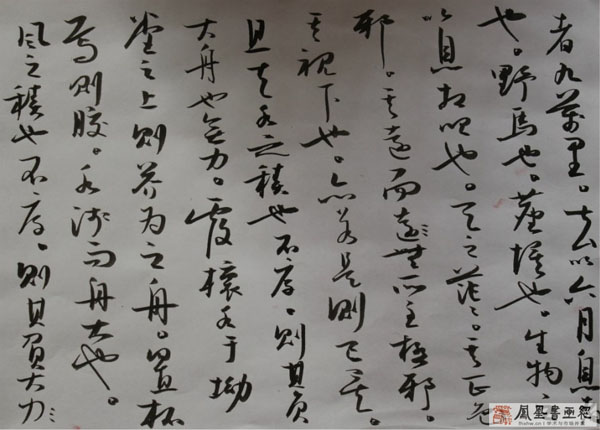 者九萬里。去以六月息者
也。野馬也。塵埃也。生物
以息相吹也。天之茫茫。其正色
邪。其遠而遠無所至極邪。
其視下也。亦若是則已矣。
且夫水之積也不厚、則其負
大舟也無力。覆水于坳
堂之上則芥為之舟。置杯
焉則膠。水淺而舟大也。
風之積也不厚、則其負大力
鳳凰書畫